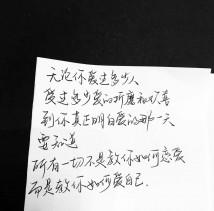 无论你爱过多少人
爱过多少爱的折磨和
到你真正明白爱的那一天
要知道
所有一切不是教你如何恋爱
而是教你如何爱自己.